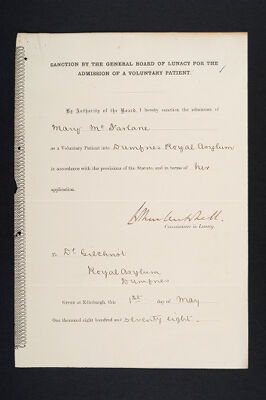 SANCTION BY THE GENERAL BOARD OF LUNACY FOR THE
ADMISSION OF A VOLUNTARY PATIENT.
1
By Authority of the Board, I hereby sanction the admission of
Mary McFarlane
as a Voluntary Patient into Dumfries Royal Asylum
in accordance with the provisions of the Statute, and in terms of her
application.
Commissioner in Lunacy.
To Dr Gilchrist
Royal Asylum
Dumfries
Given at Edinburgh, this 1st day of May
One thousand eight hundred and seventy eight.